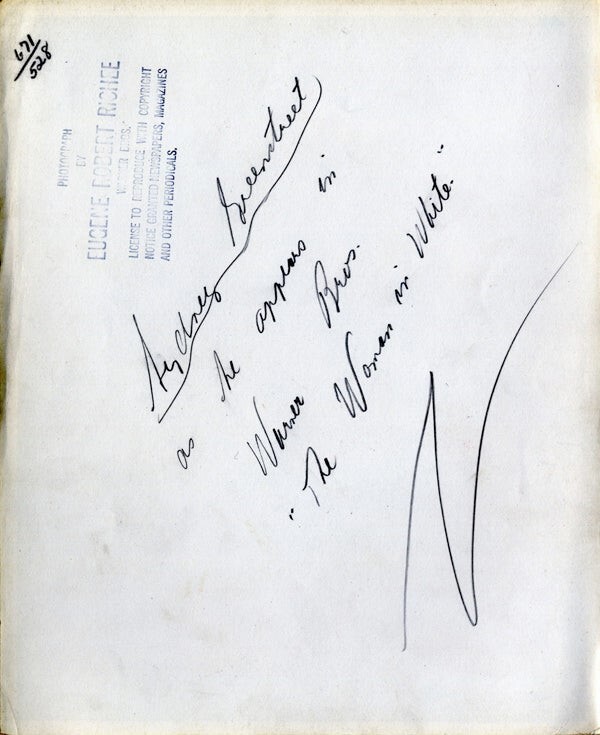 671
528
PHOTOGRAPH
BY
EUGENE ROBERT RICHEE
WARNER BROS.
LICENSE TO REPRODUCE WITH COPYRIGHT
NOTICE GRANTED NEWSPAPERS, MAGAZINES
AND OTHER PERIODICALS.
Sydney Greenstreet
as he appears in
Warner Bros.
"The Woman in White."